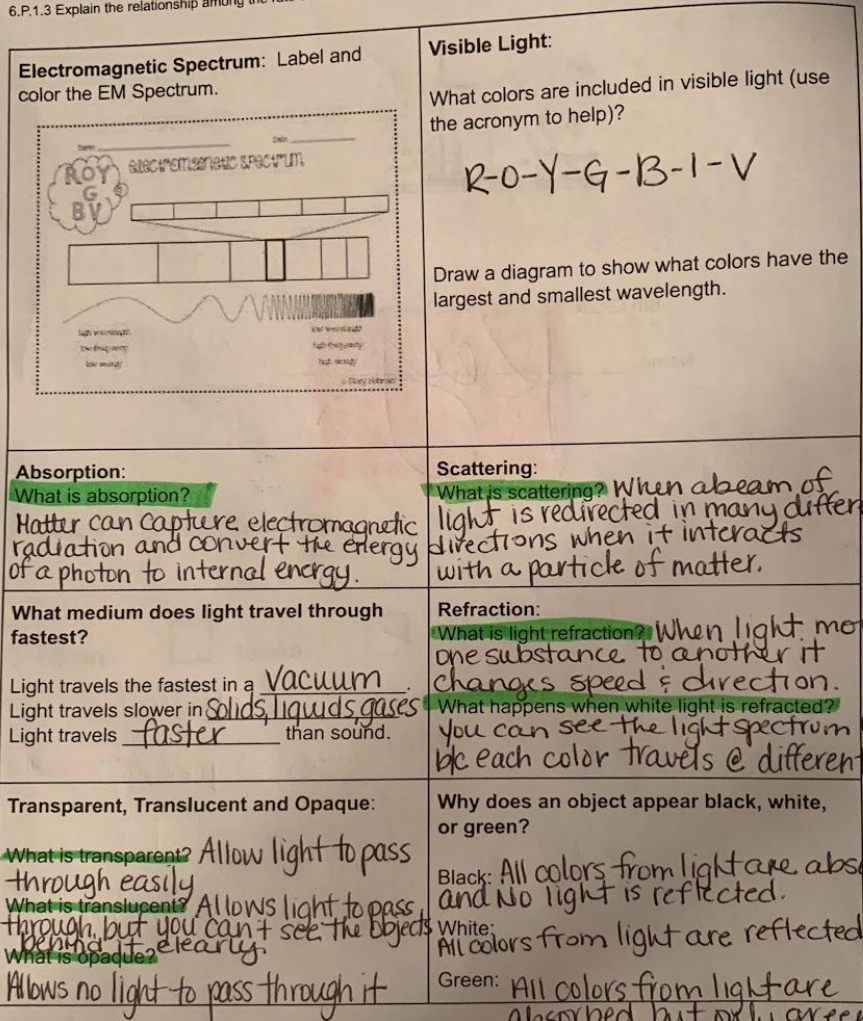 6.P.1.3 Explain the relationship among the
Electromagnetic Spectrum: Label and
color the EM Spectrum.
Date
ROY
G
BV
electromagnetic spectrum
high wavelength
low frequency
low energy
low wavelength
high frequency
high energy
Visible Light:
What colors are included in visible light (use
the acronym to help)?
R-O-Y-G-B-I-V
Draw a diagram to show what colors have the
largest and smallest wavelength.
Absorption:
What is absorption?
Matter can capture electromagnetic
radiation and convert the energy
of a photon to internal energy.
Scattering:
What is scattering? When a beam of
light is redirected in many differ
directions when it interacts
with a particle of matter.
What medium does light travel through
fastest?
Light travels the fastest in a vacuum.
Light travels slower in solids, liquids, gases
Light travels faster than sound.
Refraction:
What is light refraction? When light mo
one substance to another it
changes speed & direction.
What happens when white light is refracted?
you can see the light spectrum
b/c each color travels @ different
Transparent, Translucent and Opaque:
What is transparent? Allow light to pass
through easily
What is translucent? Allows light to pass
through, but you can't see the objects
behind it clearly.
What is opaque?
Allows no light to pass through it
Why does an object appear black, white,
or green?
Black: All colors from light are abs
and No light is reflected.
White:
All colors from light are reflected
Green: All colors from light are
absorbed but only green